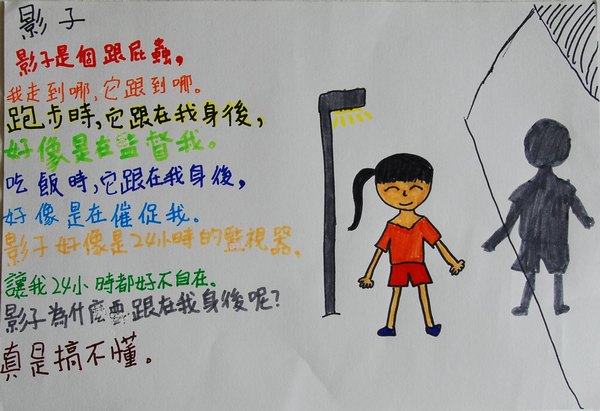 影子
影子是個跟屁蟲，
我走到哪，它跟到哪。
跑步時，它跟在我身後，
好像是在監督我。
吃飯時，它跟在我身後，
好像是在催促我。
影子好像是24小時的監視器，
讓我24小時都好不自在。
影子為什麼要跟在我身後呢？
真是搞不懂。